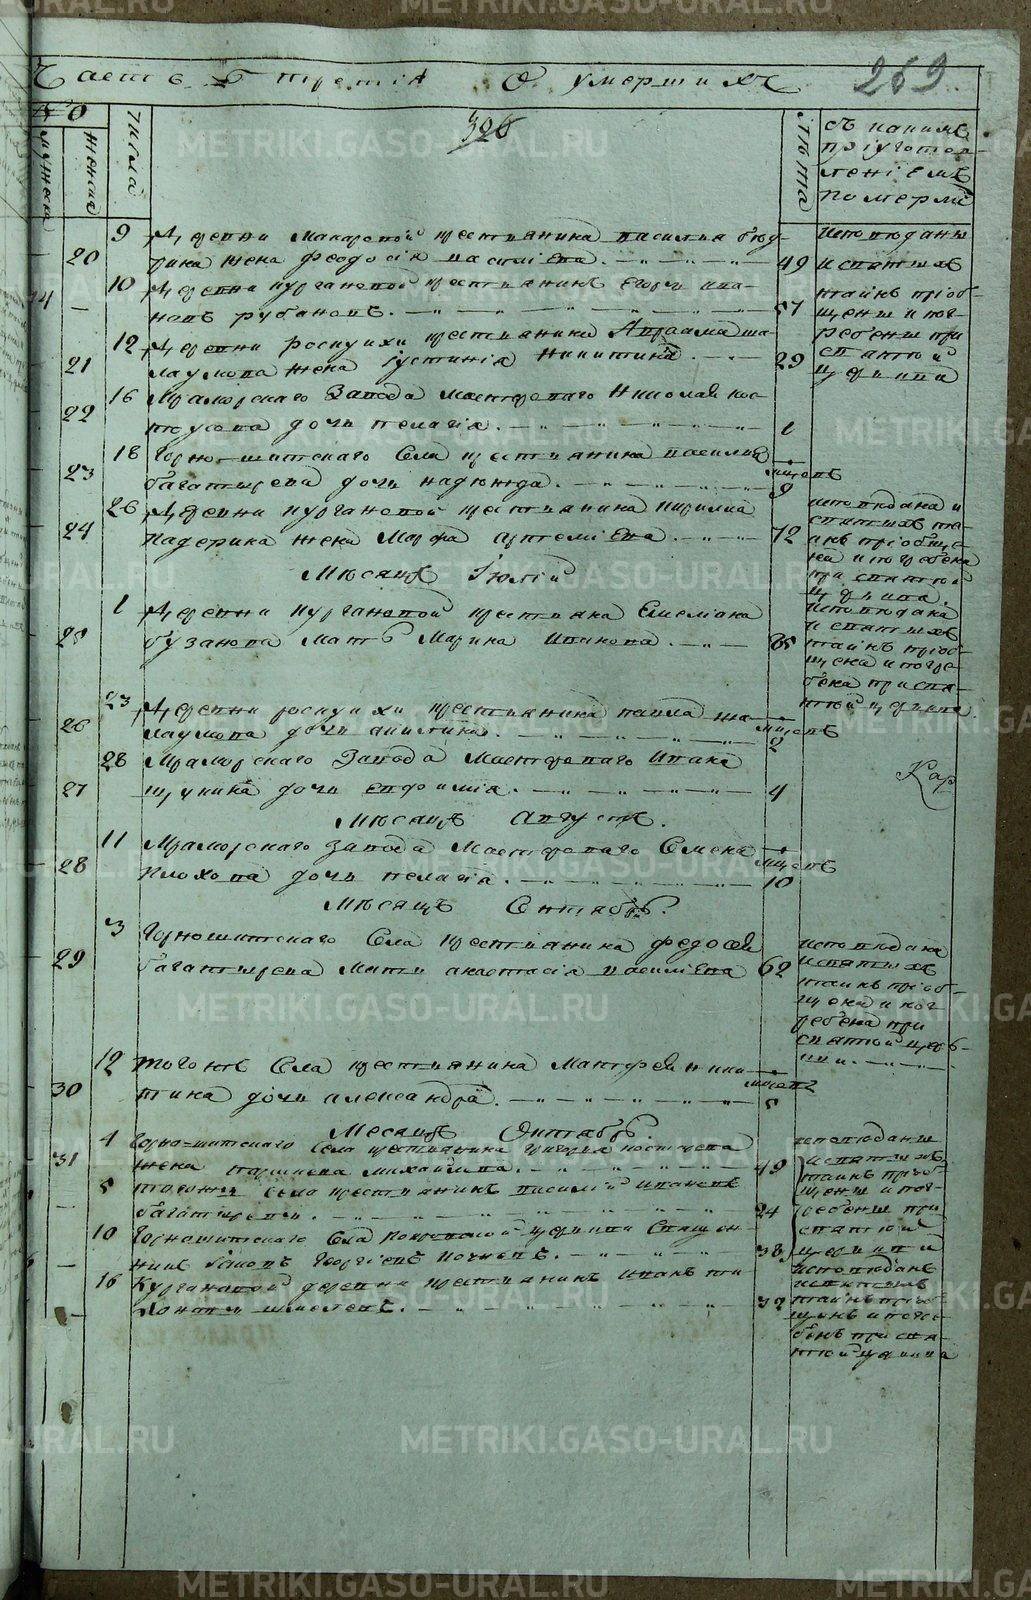 METRIKI.GASO-URAL.RU
Часть третія О умершихъ 269
№
мужеска
женска
числа
326
лѣта
съ какимъ
пріуготов-
леніемъ
померли
20 9 Деревни Макаровой крестьянина василья
жена феодосія васильева 49
исповѣданы
и святыхъ
таинъ пріоб-
щены и пог-
ребены при
святой
церкви
10 Деревни кургановой крестьянинъ Егоръ ива-
новъ рубановъ 57
21 12 Деревни роскуихи крестьянина Авраама ша-
лаумова жена іустинія никитина 29
22 16 Мраморскаго Завода мастероваго Николая кос-
тоусова дочь пелагія 1
23 18 Горно-щитскаго Села крестьянина василья
багатырева дочь надежда мцовъ 9
24 26 Деревни кургановой крестьянина кирила
падерина жена Марфа артеміева 72
исповѣдана и
святыхъ та-
инъ пріобще-
на и погребена
при святой
церкви
Мѣсяцъ Іюлій
25 1 Деревни кургановой крестьянина Емеліана
бузанова мать Марина иванова 85
исповѣдана
и святыхъ
таинъ пріоб-
щена и погре-
бена при свя-
той церкви
26 23 Деревни роскуихи крестьянина павла ша-
лаумова дочь акилина мцовъ 2
27 28 Мраморскаго Завода Мастероваго Ивана
щукина дочь евфимія 4
Мѣсяцъ Августъ.
28 11 Мраморскаго завода Мастероваго Семена
плохова дочь пелагія мцовъ 10
Мѣсяцъ Сентябрь.
29 3 Горнощитскаго Села крестьянина федосѣя
багатырева мати анастасія васильева 62
исповѣдана
и святыхъ
таинъ пріоб-
щена и пог-
ребена при
святой церк-
ви
30 12 тогожъ Села крестьянина Матфея ники-
тина дочь александра мцовъ 5
Месяцъ Октябрь.
31 4 Горно-щитскаго Села крестьянина григорья костоусова
жена михайлова 49
исповѣданы
и святыхъ
таинъ пріоб-
щены и пог-
ребены при
святой
церкви
5 тогожъ села крестьянинъ василій ивановъ
багатыревъ 24
10 Горнощитскаго Села покровской церкви Священ-
никъ Георгіевъ 38
16 Кургановой деревни крестьянинъ иванъ ти
39
исповѣданъ
и святыхъ
таинъ пріоб-
щенъ и погре-
бенъ при свя-
той церкви